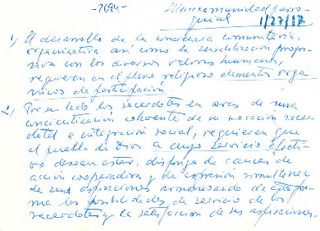 -2694-
Mancomunidad parro-
quial
1/27/87
1) El desarrollo de la conciencia comunitaria,
organizativa así como la sensibilización progre-
siva con los diversos valores humanos,
requieren en el plano religioso elementos orgá-
nicos de participación.
2) Por su lado los sacerdotes en aras de una
concientización coherente de su vocación sacer-
dotal e integración social, requieren que
el pueblo de Dios a cuyo servicio efecti-
vo desean estar, disponga de cauces de
acción cooperadora y de expresión simultánea
de sus aspiraciones armonizando de esta for-
ma las posibilidades de servicio de los
sacerdotes y la satisfacción de sus aspiraciones.